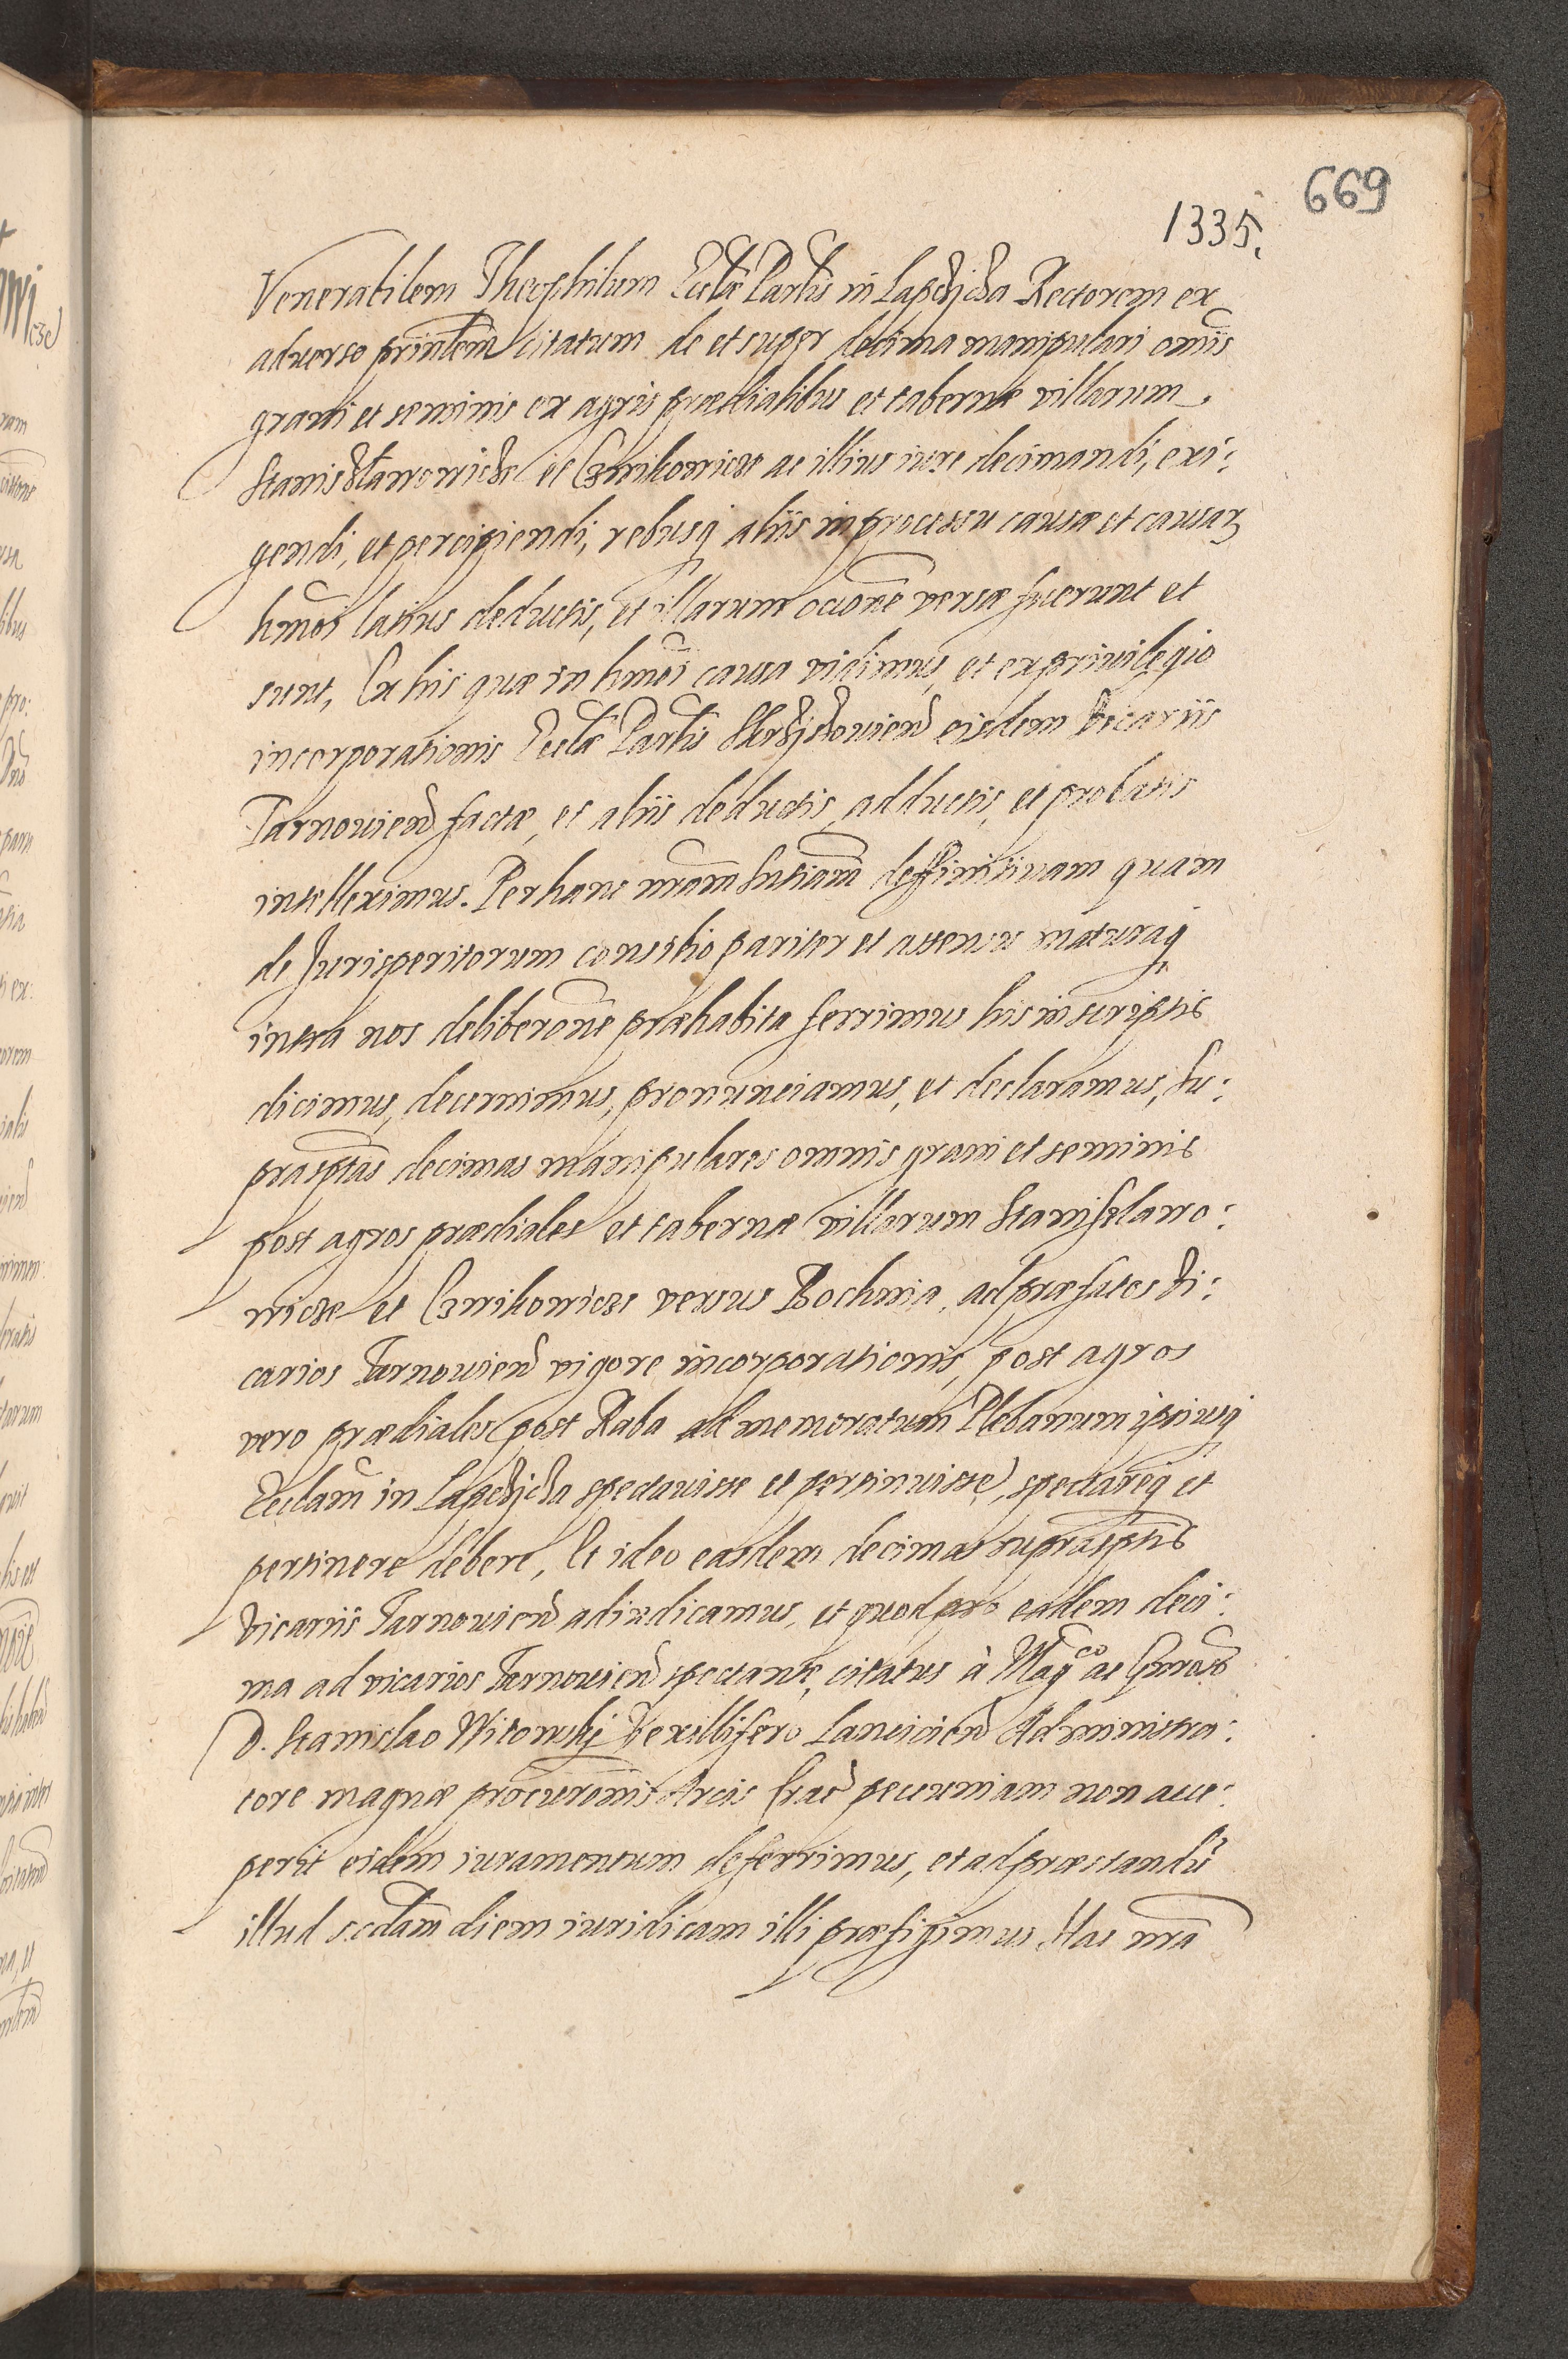 669
1335.
Venerabilem Theophilum Ecclæ Parlis in Lapczicza Rectorem ex
aduerso prīnlem citatum de et super decima manipulari omīs
grani et seminis ex agris prædialibus et tabernæ villarum
Stanislawowicze et Cznikowicze ac illius iure decimandi, exi:
gendi, et percipiendi, rebusq aliis in processu causæ et causar
hmōi latius deductis, et illarum occōne versæ fuerunt et
sunt, Ex his quæ in hmōi causa vidimus, et ex priuilegio
incorporationis Ecclæ Parlis eisdem Vicariis
Tarnouien factæ, et aliis deductis, adductis, et probatis
intelleximus. Per hanc nram Sntiam deffinitiuam quam
de Jurisperitorum consilio pariter et assensu maturaq
intra nos deliberōne præhabita ferrimus his in scriptis
dicimus, decernimus, pronunciamus, et declaramus, su:
prasptas decimas manipulares omnis grani et seminis
post agros prædiales et tabernæ villarum Stanislawo:
wicze et Cznikowicze versus Bochnia, ad præfatos Vi:
carios Tarnouien vigore incorporationis, post agros
vero prædiales post Raba ad memoratum Plebanum ipsiusq
Ecclam in Lapczicza spectauisse et pertinuisse, spectareq et
pertinere debere, Et ideo easdem decimas suprasptis
Vicariis Tarnouien adiudicamus, et quod pro eadem deci:
ma ad vicarios Tarnouien spectante, citatus à Magco ac Gnroso
D. Stanislao Witowskj Vexillifero Lanciciен Administra:
tore magnæ procurōnis Arcis Crac pecuniam non acce:
perit eidem iuramentum defferimus, et ad præstandū
illud scdam diem iuridicam illi præfigimus Hac nrā